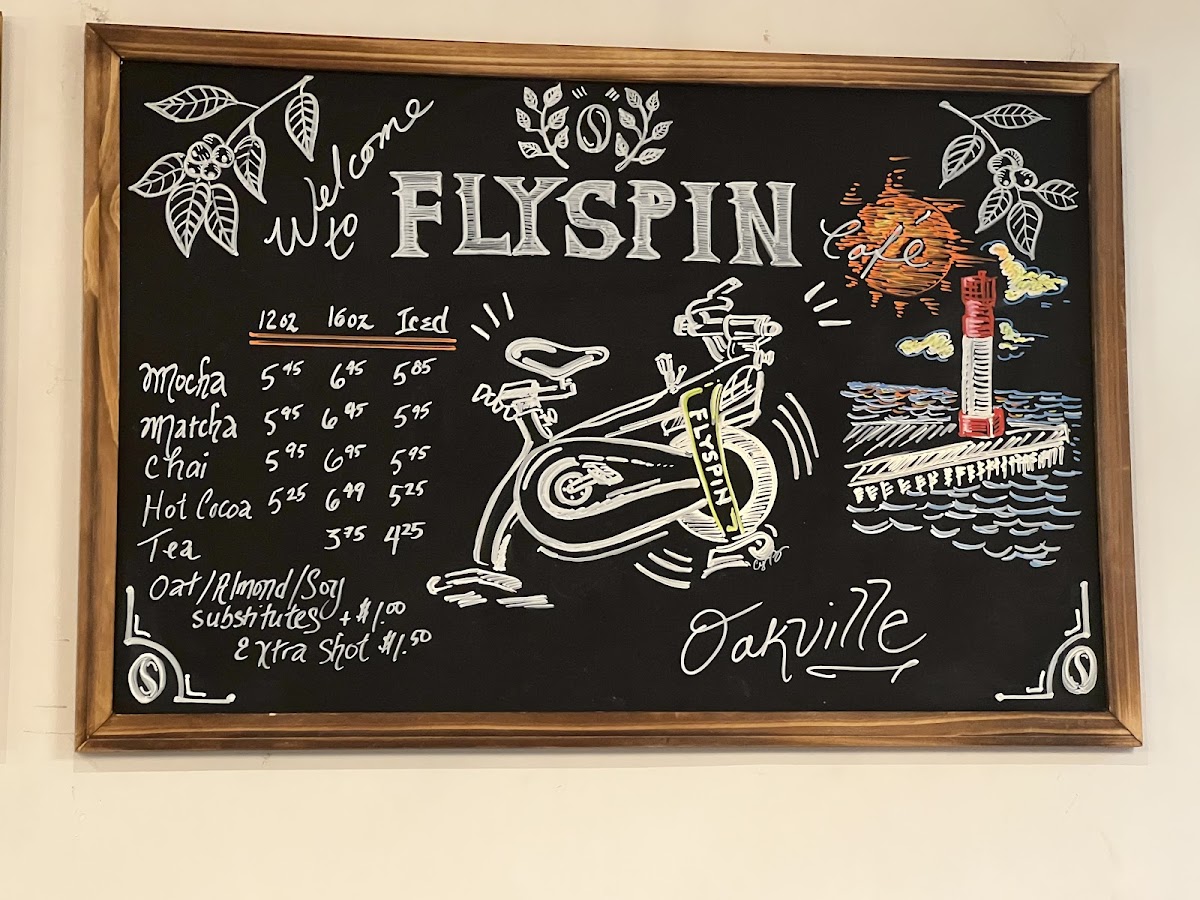 Welcome
to FLYSPIN Café
S
12oz 16oz Iced
Mocha 5 45 6 45 5 85
Matcha 5 95 6 95 5 95
Chai 5 95 6 95 5 95
Hot Cocoa 5 25 6 49 5 25
Tea 3 75 4 25
Oat/Almond/Soy
substitutes + $1.00
Extra Shot $1.50
FLYSPIN
Oakville
S
S